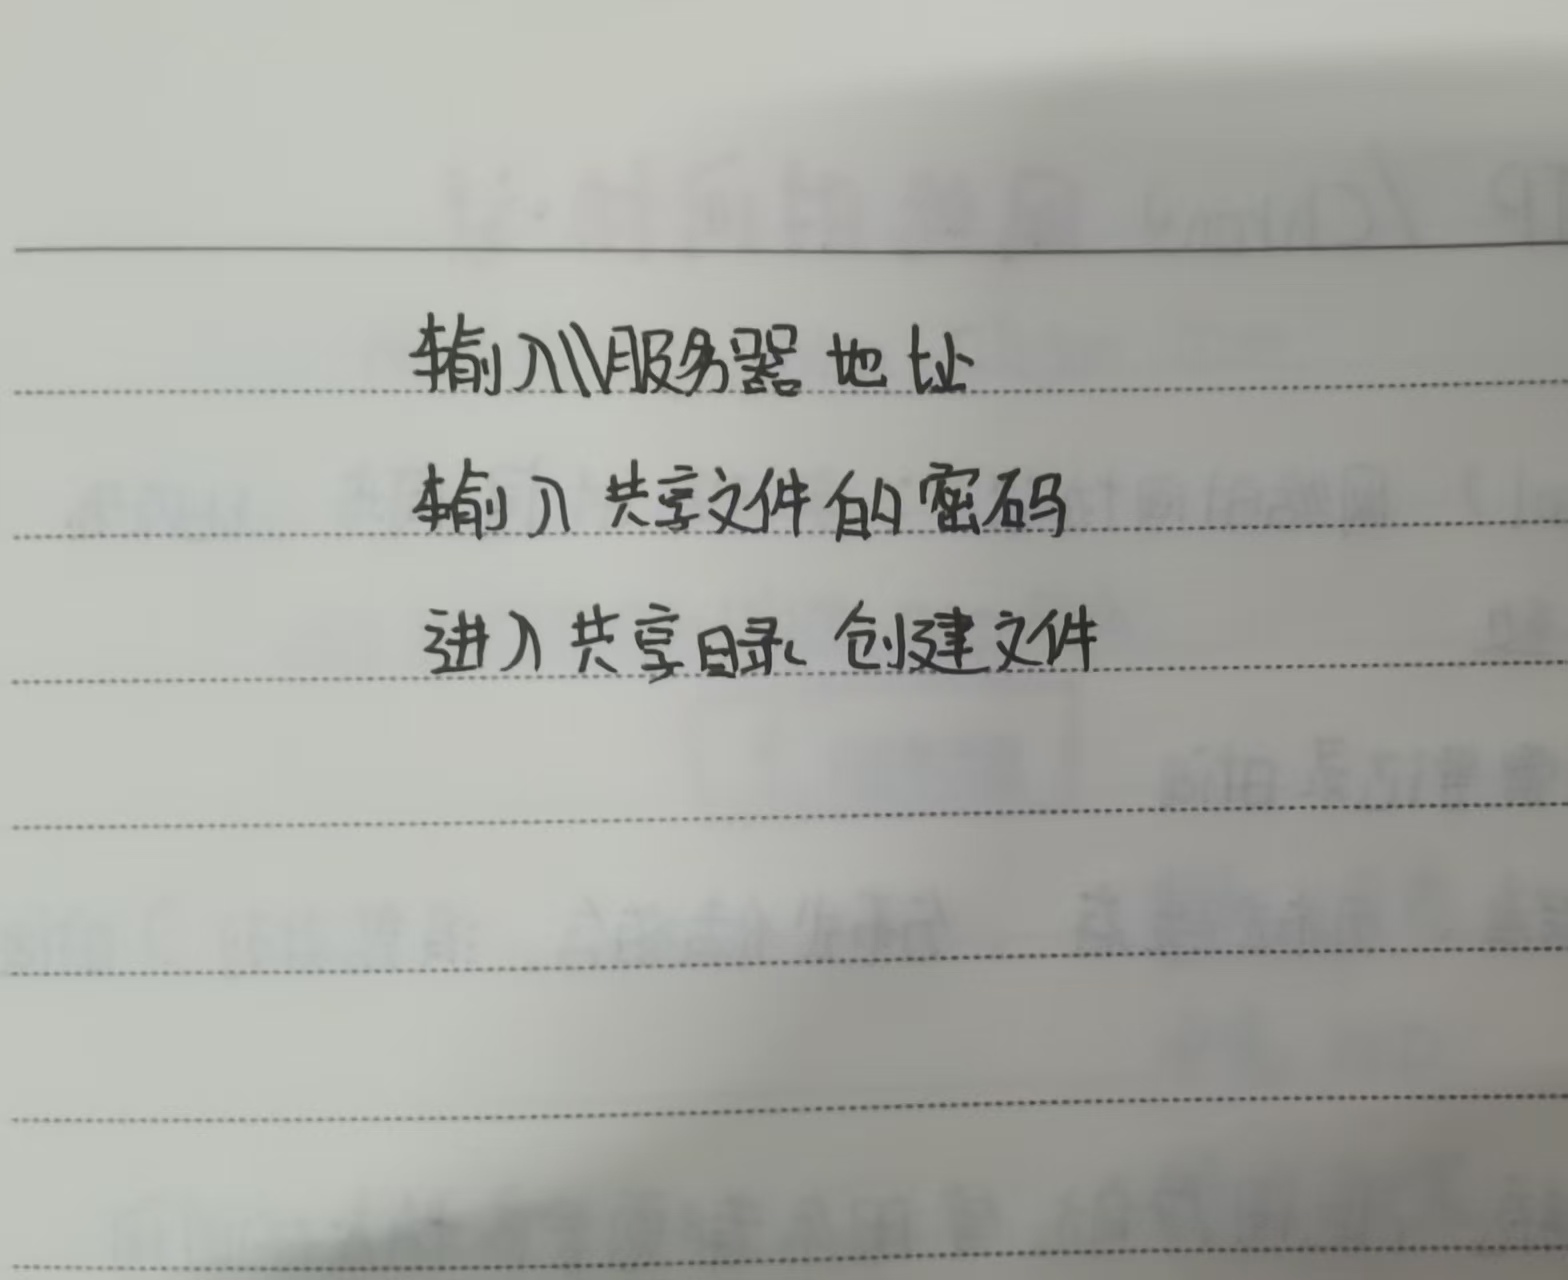 输入\\服务器地址
输入共享文件的密码
进入共享目录、创建文件